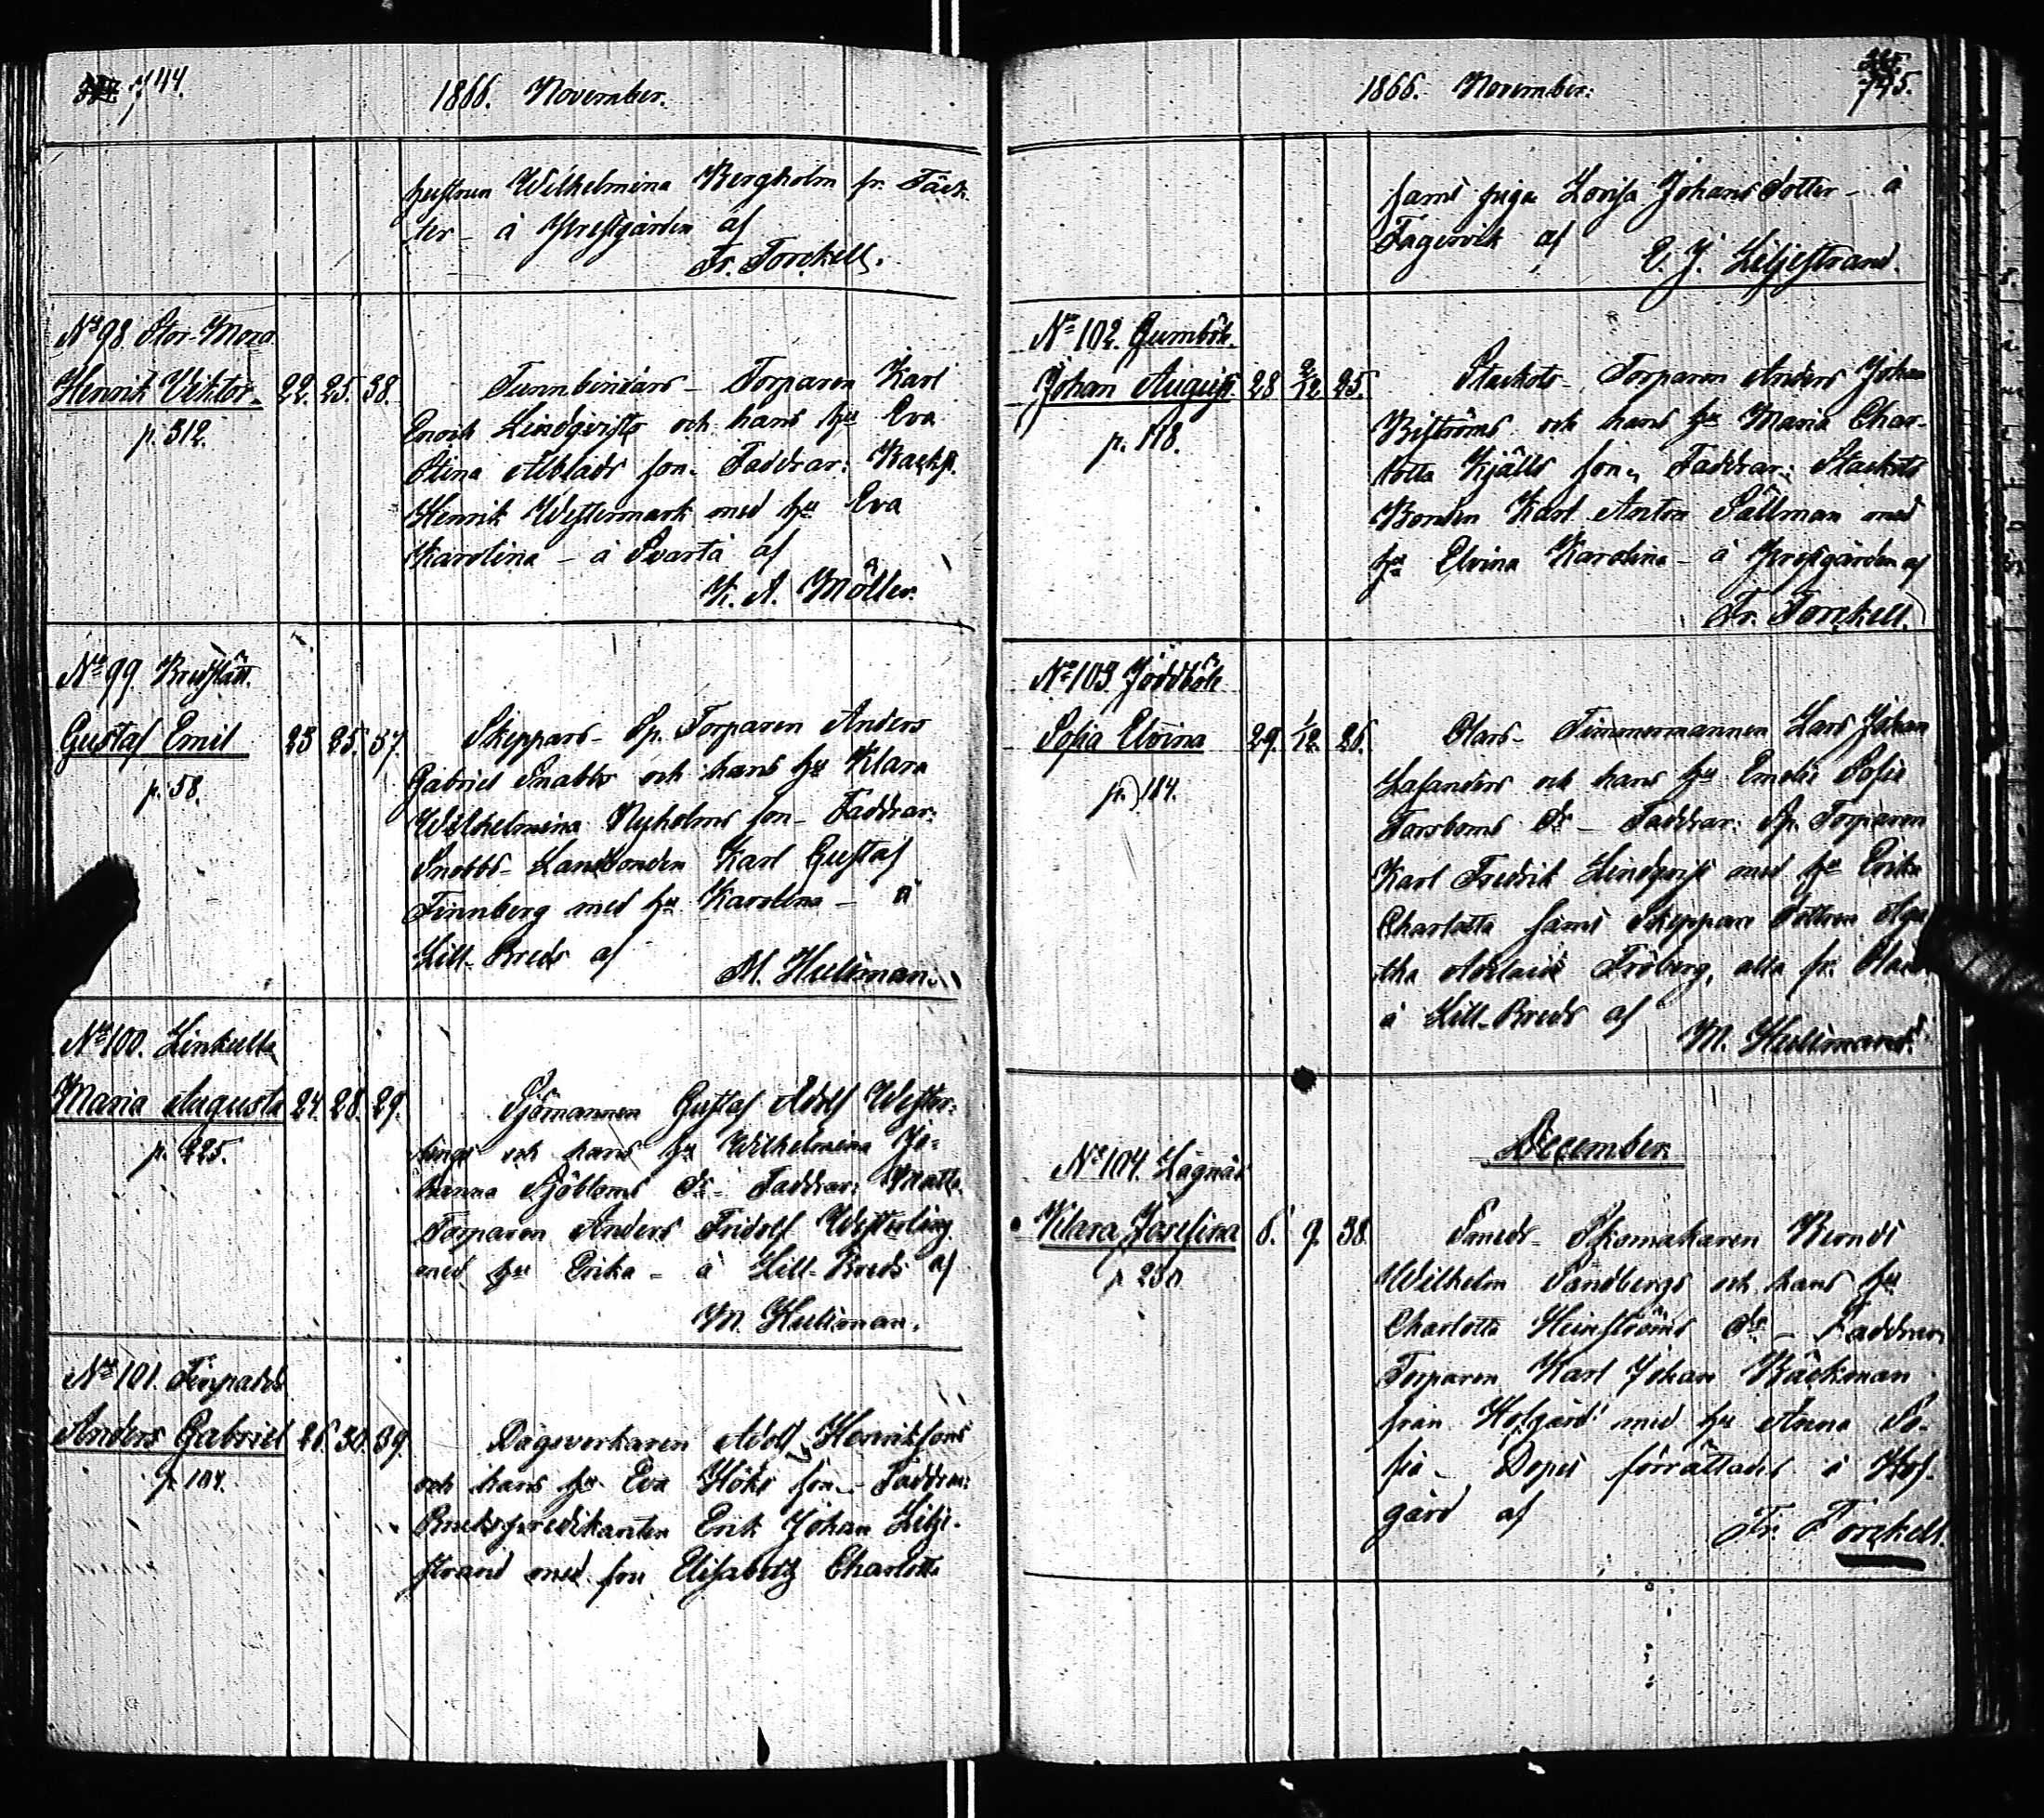 744.
1866. November.
hustrun Wilhelmina Bergholm fr. Täck-
ter - å Prestgården af
Fr. Torckell.
No 98. Stor-Mora
Henrik Viktor. 22. 25. 38.
p. 312.
Tunnbindars- Torparen Karl
Enrik Lindqvists och hans hu Eva
Stina Alblads son. Faddrar:
Henrik Westermark med hu Eva
Karolina - å Svartå af
K. A. Möller.
No 99. Bredslätt.
Gustaf Emil 23 25. 37.
p. 58.
Skeppars- Sp. Torparen Anders
Gabriel Snabbs och hans hu Klara
Wilhelmina Nyholms son - Faddrar:
Snobbs- Landbonden Karl Gustaf
Finnberg med hu Karolina - å
Lill-Breds af
M. Hultman.
No 100. Linkulla
Maria Augusta 24. 28. 29.
p. 225.
Sjömannen Gustaf Adolf Wester-
lings och hans hu Wilhelmina Jo-
hanna Sjöbloms dr - Faddrar: Matts-
Torparen Anders Fridolf Westerling
med hu Erika - å Lill-Breds af
M. Hultman.
No 101.
Anders Gabriel 26. 30. 39.
p. 104.
Dagsverkaren Adolf Henriksons
och hans hu Eva Höks son - Faddrar:
Brukspredikanten Erik Johan Lilje-
strand med fru Elisabeth Charlotta
745.
1866. November.
samt piga Lovisa Johansdotter - å
Fagervik af
E. J. Liljestrand.
No 102. Gumböle.
Johan August. 28 2/12 25.
p. 118.
Stackots- Torparen Anders Johan
Biströms och hans hu Maria Char-
lotta Kjälls son, Faddrar: Stackots
Bonden Karl Anton Sällman med
hu Elvina Karolina - å Prestgården af
Fr. Torckell.
No 103. Joddböle
Sofia Elvina 29. 1/12. 26.
p. 184.
Olars- Timmermannen Lars Johan
Lasanders och hans hu Emelie Sofie
Forsboms dr - Faddrar: Sp. Torparen
Karl Fredrik Lindqvist med hu Erika
Charlotta samt Skeppare dottren Aga
tha Adelaide Fröberg, alla fr.
å Lill-Breds af
M. Hultman.
December.
No 104. Lågnäs
Klara Josefina 6. 9. 38.
p. 230
Smeds- Skomakaren Berndt
Wilhelm Sandbergs och hans hu
Charlotta Heinströms dr - Faddrar
Torparen Karl Johan Bäckman
från Hofgård med hu Anna So-
fia - Dopet förrättades i Hof-
gård af
Fr. Torckell.